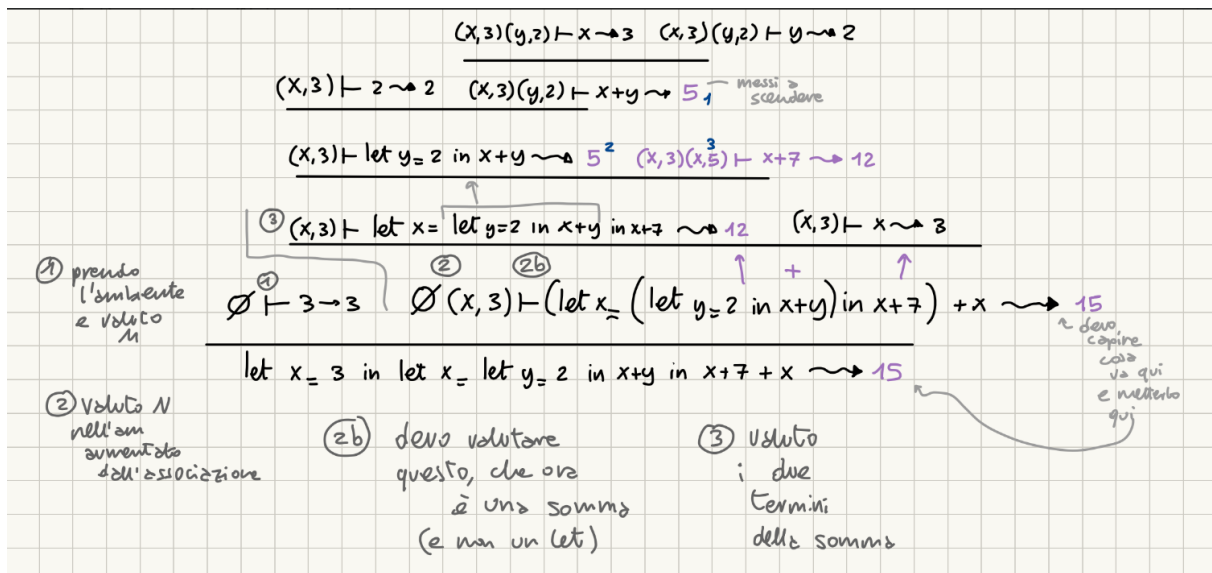 (x,3)(y,2) ⊢ x ⇝ 3 (x,3)(y,2) ⊢ y ⇝ 2
(x,3) ⊢ 2 ⇝ 2 (x,3)(y,2) ⊢ x+y ⇝ 5 1
messi a
scendere
(x,3) ⊢ let y=2 in x+y ⇝ 5 2 (x,3)(x,5) 3 ⊢ x+7 ⇝ 12
③ (x,3) ⊢ let x= let y=2 in x+y in x+7 ⇝ 12 (x,3) ⊢ x ⇝ 3
+
① prendo
l'ambiente
e valuto
M
① ② 2b
∅ ⊢ 3 → 3 ∅ (x,3) ⊢ (let x= (let y=2 in x+y) in x+7) + x ⇝ 15
devo
capire
cosa
va qui
e metterlo
qui
let x= 3 in let x= let y=2 in x+y in x+7 + x ⇝ 15
② valuto N
nell'am
aumentato
dall'associazione
2b devo valutare
questo, che ora
è una somma
(e non un let)
③ valuto
i due
termini
della somma